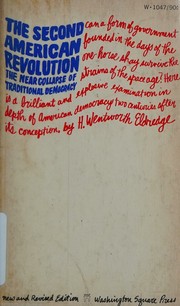 W•1047/90¢
THE SECOND
AMERICAN
REVOLUTION
THE NEAR COLLAPSE OF
TRADITIONAL DEMOCRACY
can a form of government
founded in the days of the
one-horse shay survive the
strains of the space age? Here
is a brilliant and explosive examination in
depth of American democracy two centuries after
its conception, by H. Wentworth Eldredge
New and Revised Edition
Washington Square Press